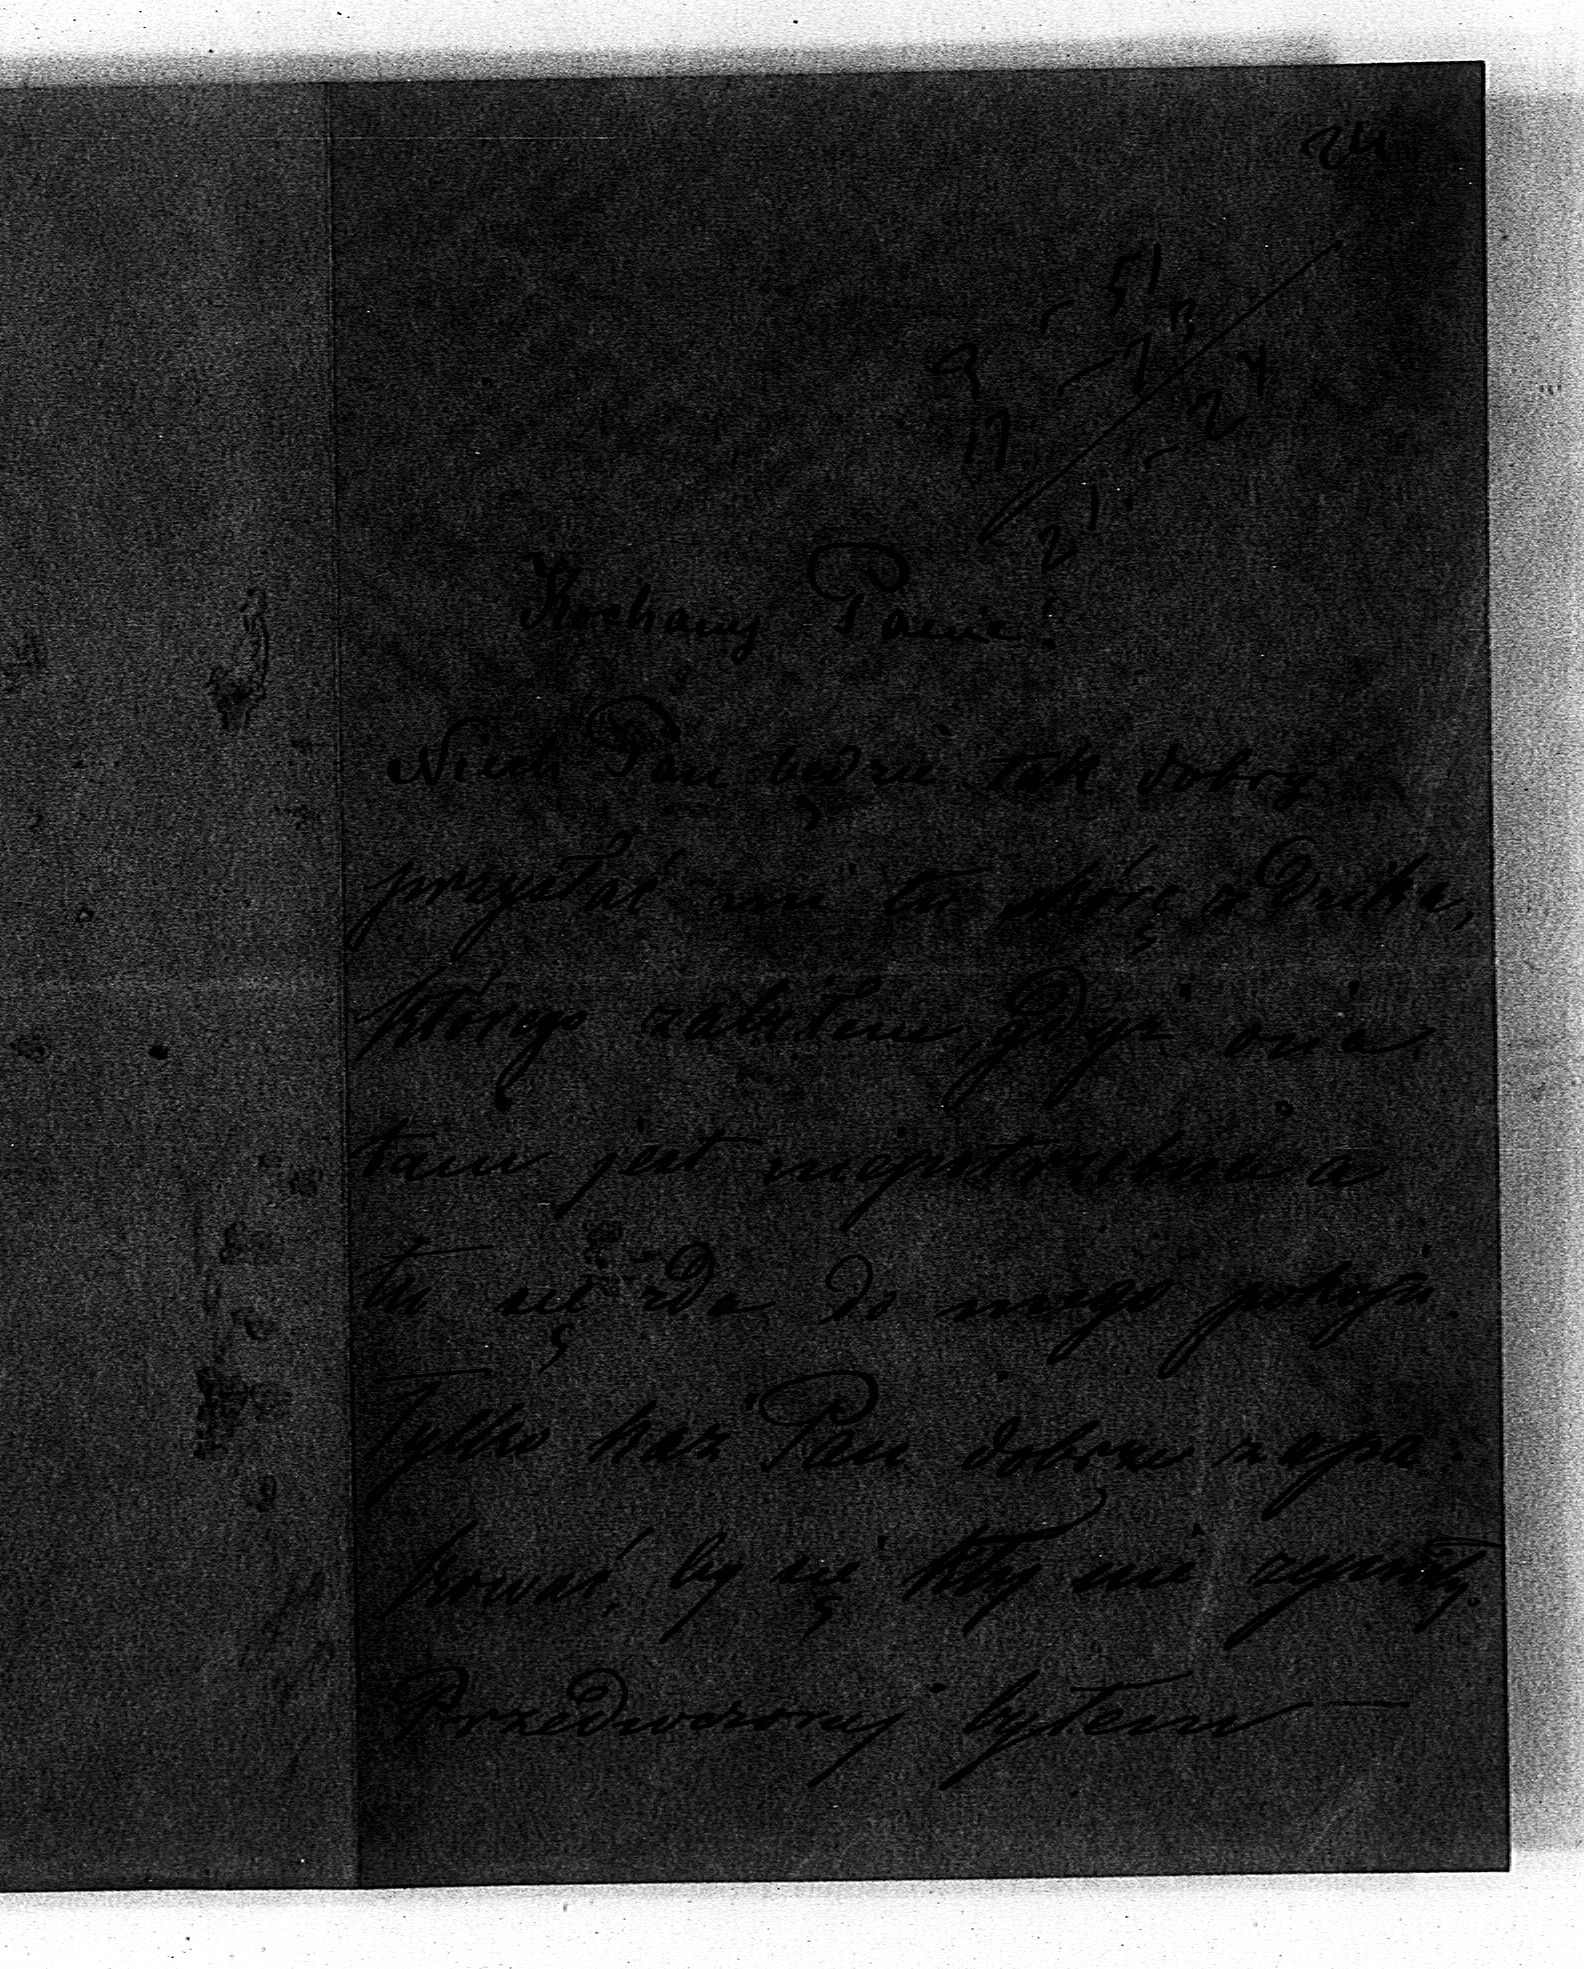 24
Kochany Panie!
Niech Pan będzie tak dobry
przysłać mi tu skórę z Dzika,
którego zabiłem, gdyż ona
tam jest niepotrzebna a
tu się zda do mego pokoju.
Tylko każ Pan dobrze zapa-
kować, by się kły nie
Przedwczoraj byłem —